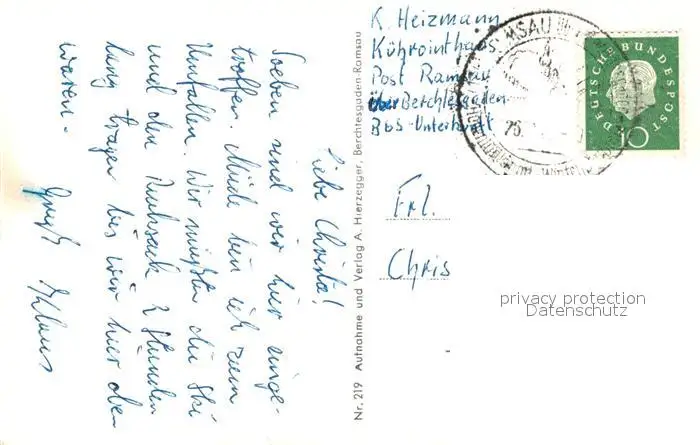 Liebe Christa!
Soeben sind wir hier einge-
troffen. Müde bin ich zum
Umfallen. Wir mußten die Ski
und den Rucksack 2 Stunden
lang tragen bis wir hier oben
waren.
Gruß Klaus
Nr. 219 Aufnahme und Verlag A. Hierzegger, Berchtesgaden-Ramsau
K. Heizmann
Kührointhaus
Post Ramsau
über Berchtesgaden
BGS-Unterkunft
Frl.
Chris
DEUTSCHE BUNDESPOST
10
RAMSAU
privacy protection
Datenschutz